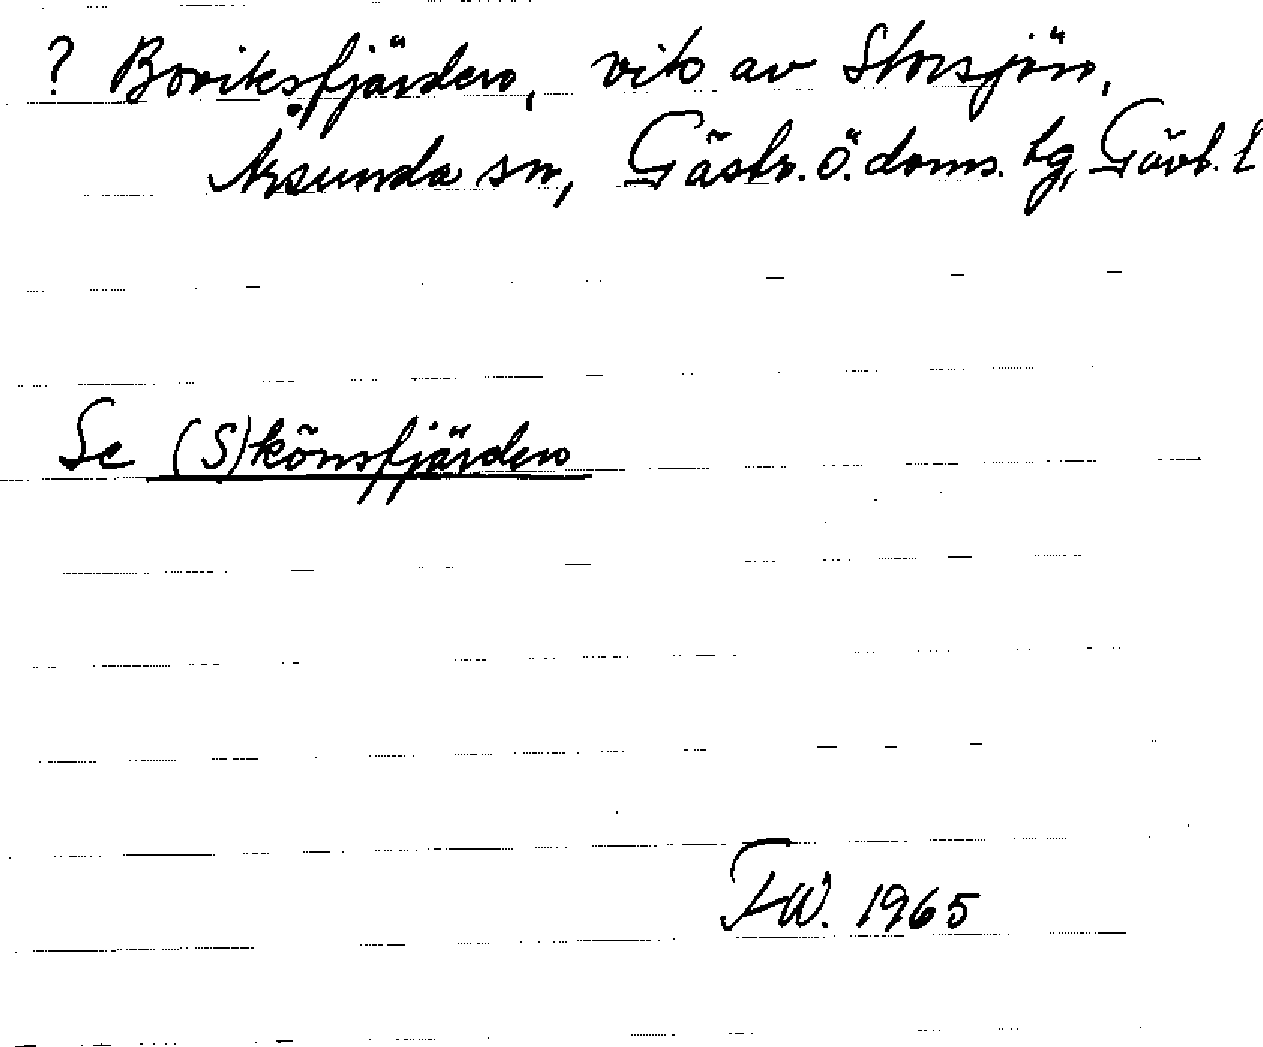 ? Boviksfjärden, vik av Storsjön,
Årsunda sn, Gästr. ö. doms. tg, Gävl. l
Se (S)könsfjärden
FW. 1965